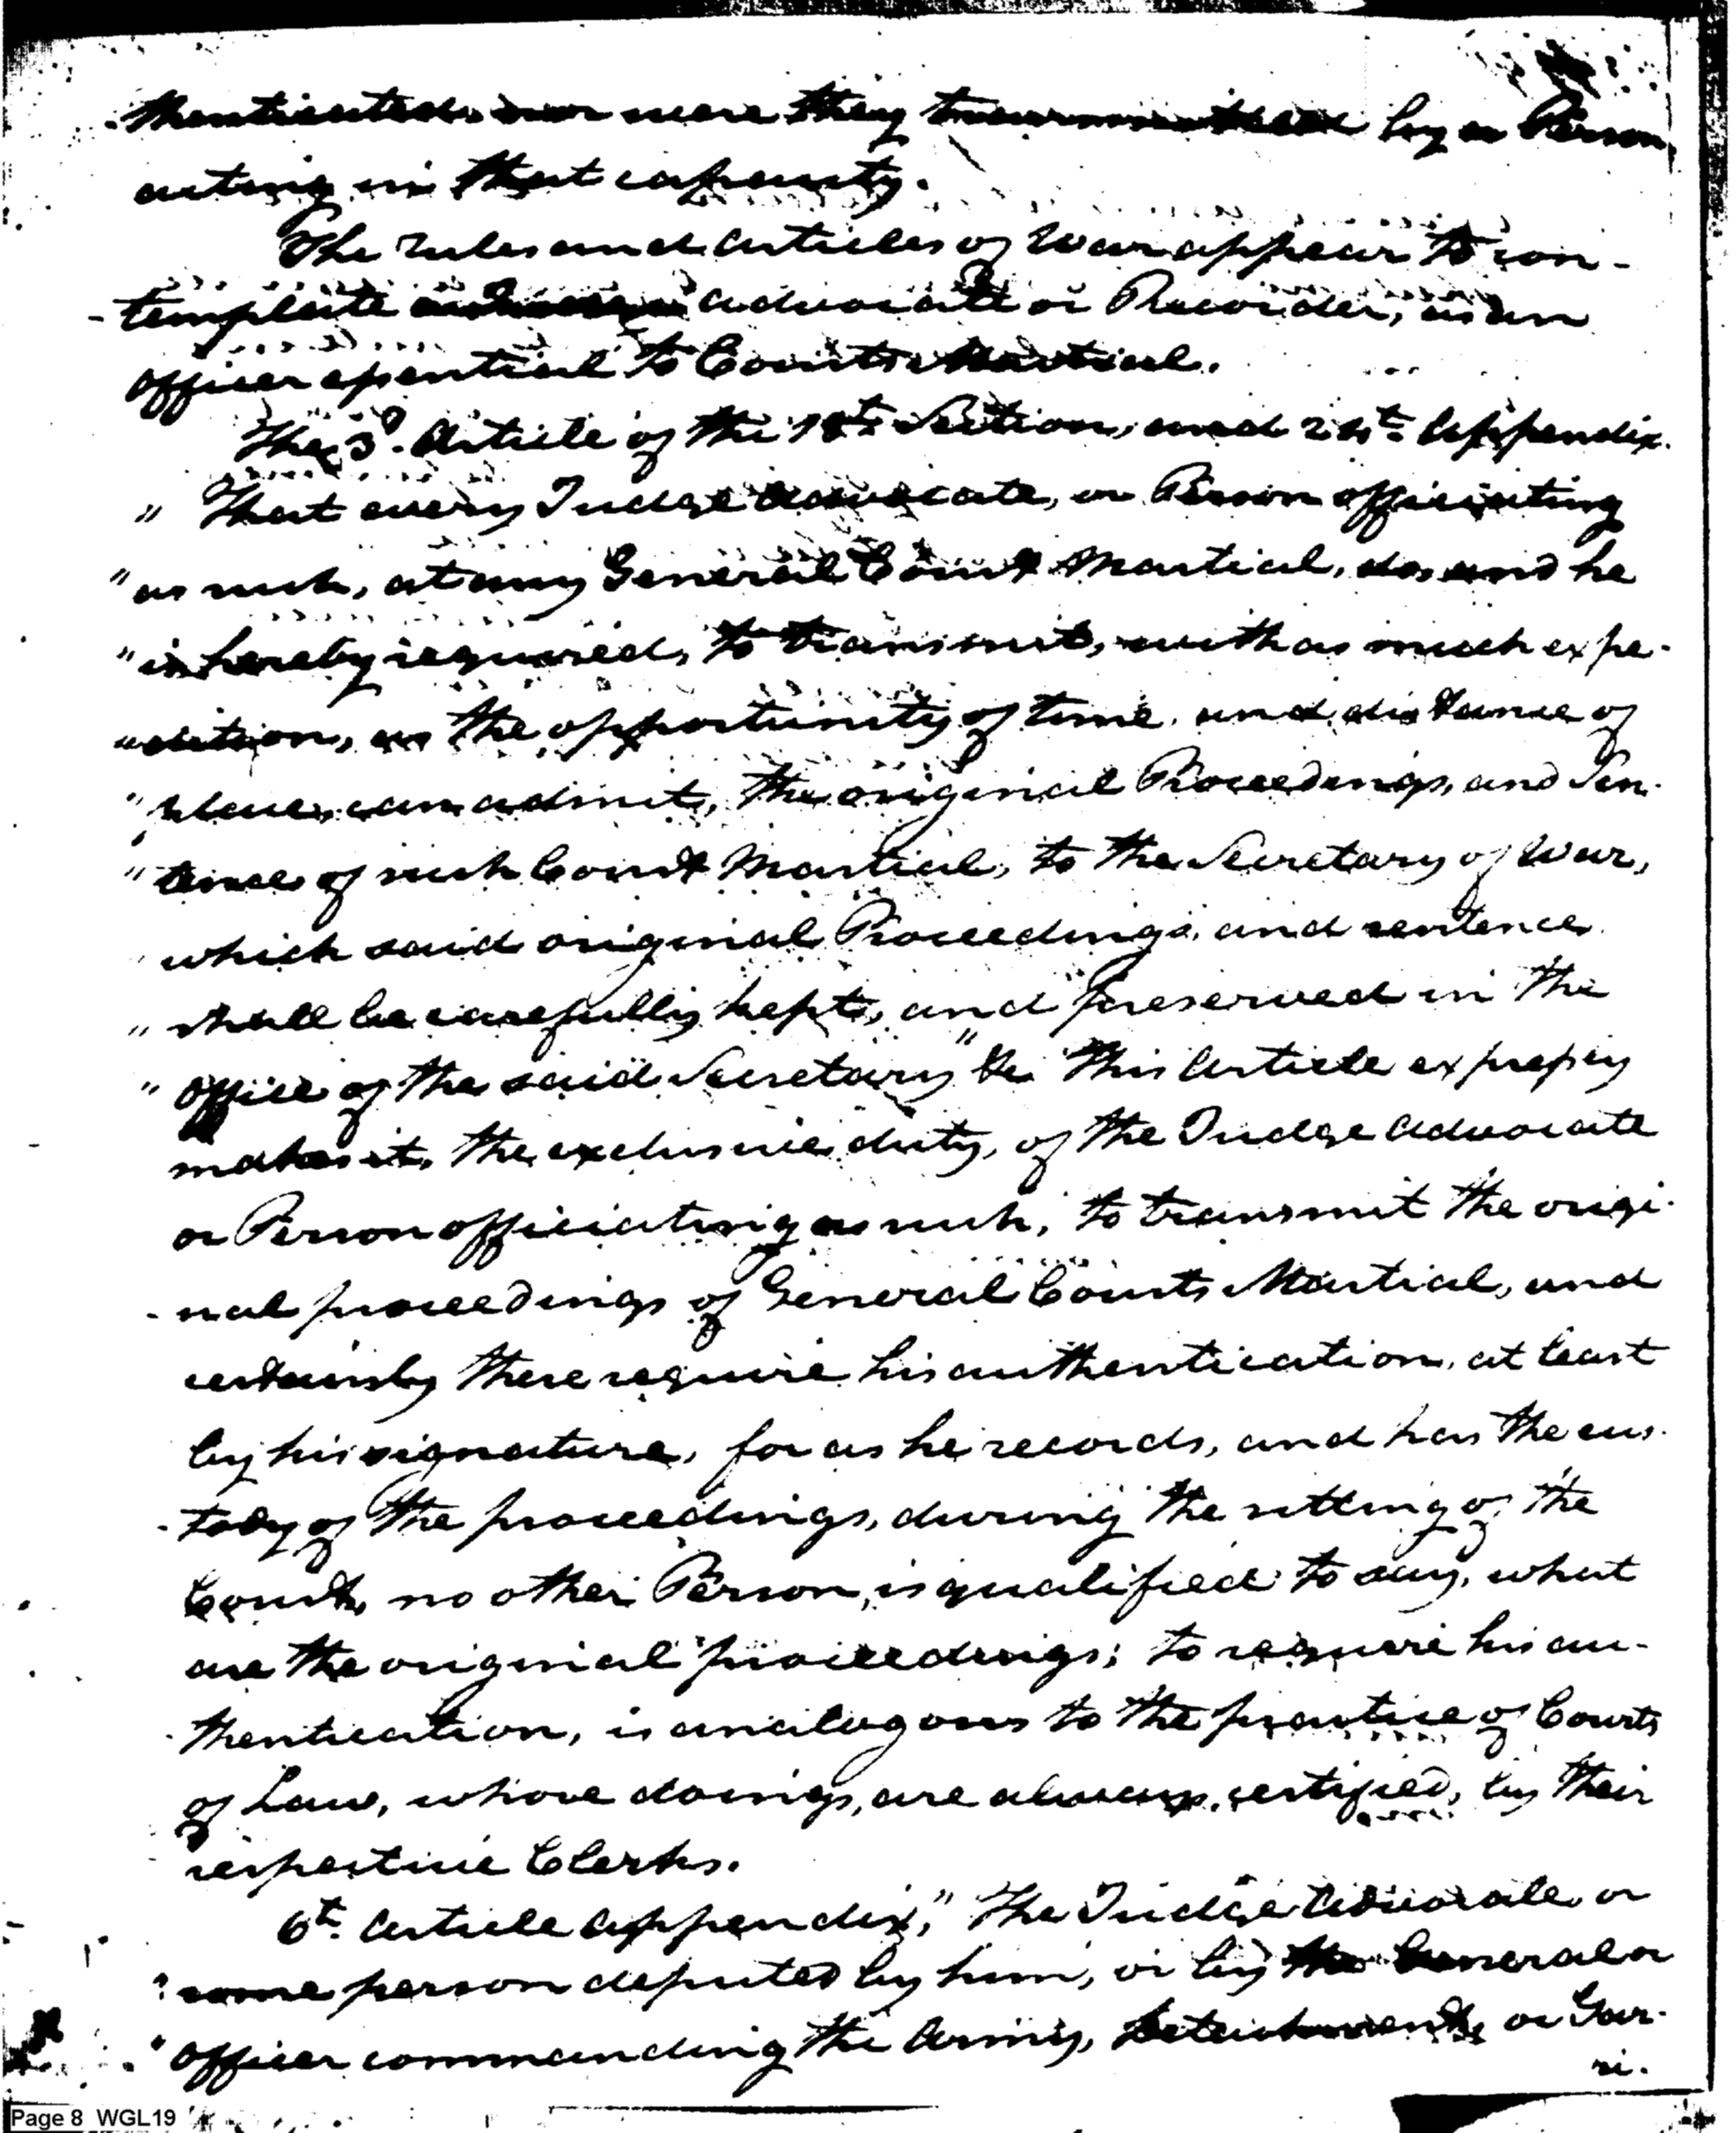 thenticated, nor were they transmitted by a Person
acting in that capacity.
The rules and articles of War appear to con-
- template a Judge advocate or Recorder, as an
officer essential to Courts Martial.
The 3d. Article of the 18th Section, and 24th. Appendix.
" That every Judge advocate, or Person officiating
" as such, at any General Court Martial, do, and he
" is hereby required, to transmit, with as much expe-
" dition, as the opportunity of time and distance of
" place, can admit, the original Proceedings, and Sen-
" tence of such Court Martial, to the Secretary of War,
" which said original Proceedings, and sentence
" shall be carefully kept, and preserved in the
" office of the said Secretary" &c This Article expressly
makes it, the exclusive duty, of the Judge advocate
or Person officiating as such, to transmit the origi-
- nal proceedings of General Courts Martial, and
certainly these require his authentication, at least
by his signature, for as he records, and has the cus-
- tody of the proceedings, during the sitting of the
Court, no other Person, is qualified to say, what
are the original proceedings; to require his au-
- thentication, is analogous to the practice of Courts
of Law, whose doings, are always, certified, by their
respective Clerks.
6th. Article appendix, " The Judge Advocate or
" some person deputed by him, or by the General or
" officer commanding the Army, Detachment, or Gar-
ri-
Page 8 WGL19